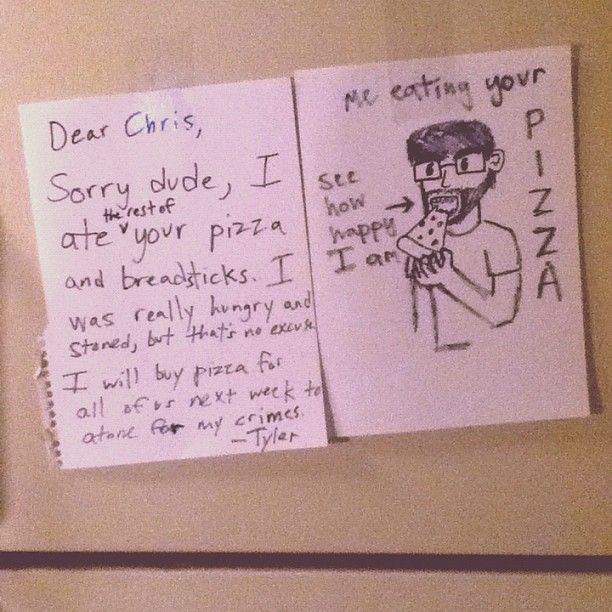 Dear Chris,
Sorry dude, I
ate the rest of your pizza
and breadsticks. I
was really hungry and
stoned, but that's no excuse
I will buy pizza for
all of us next week to
atone for my crimes.
—Tyler
Me eating your
PIZZA
see
how
happy
I am